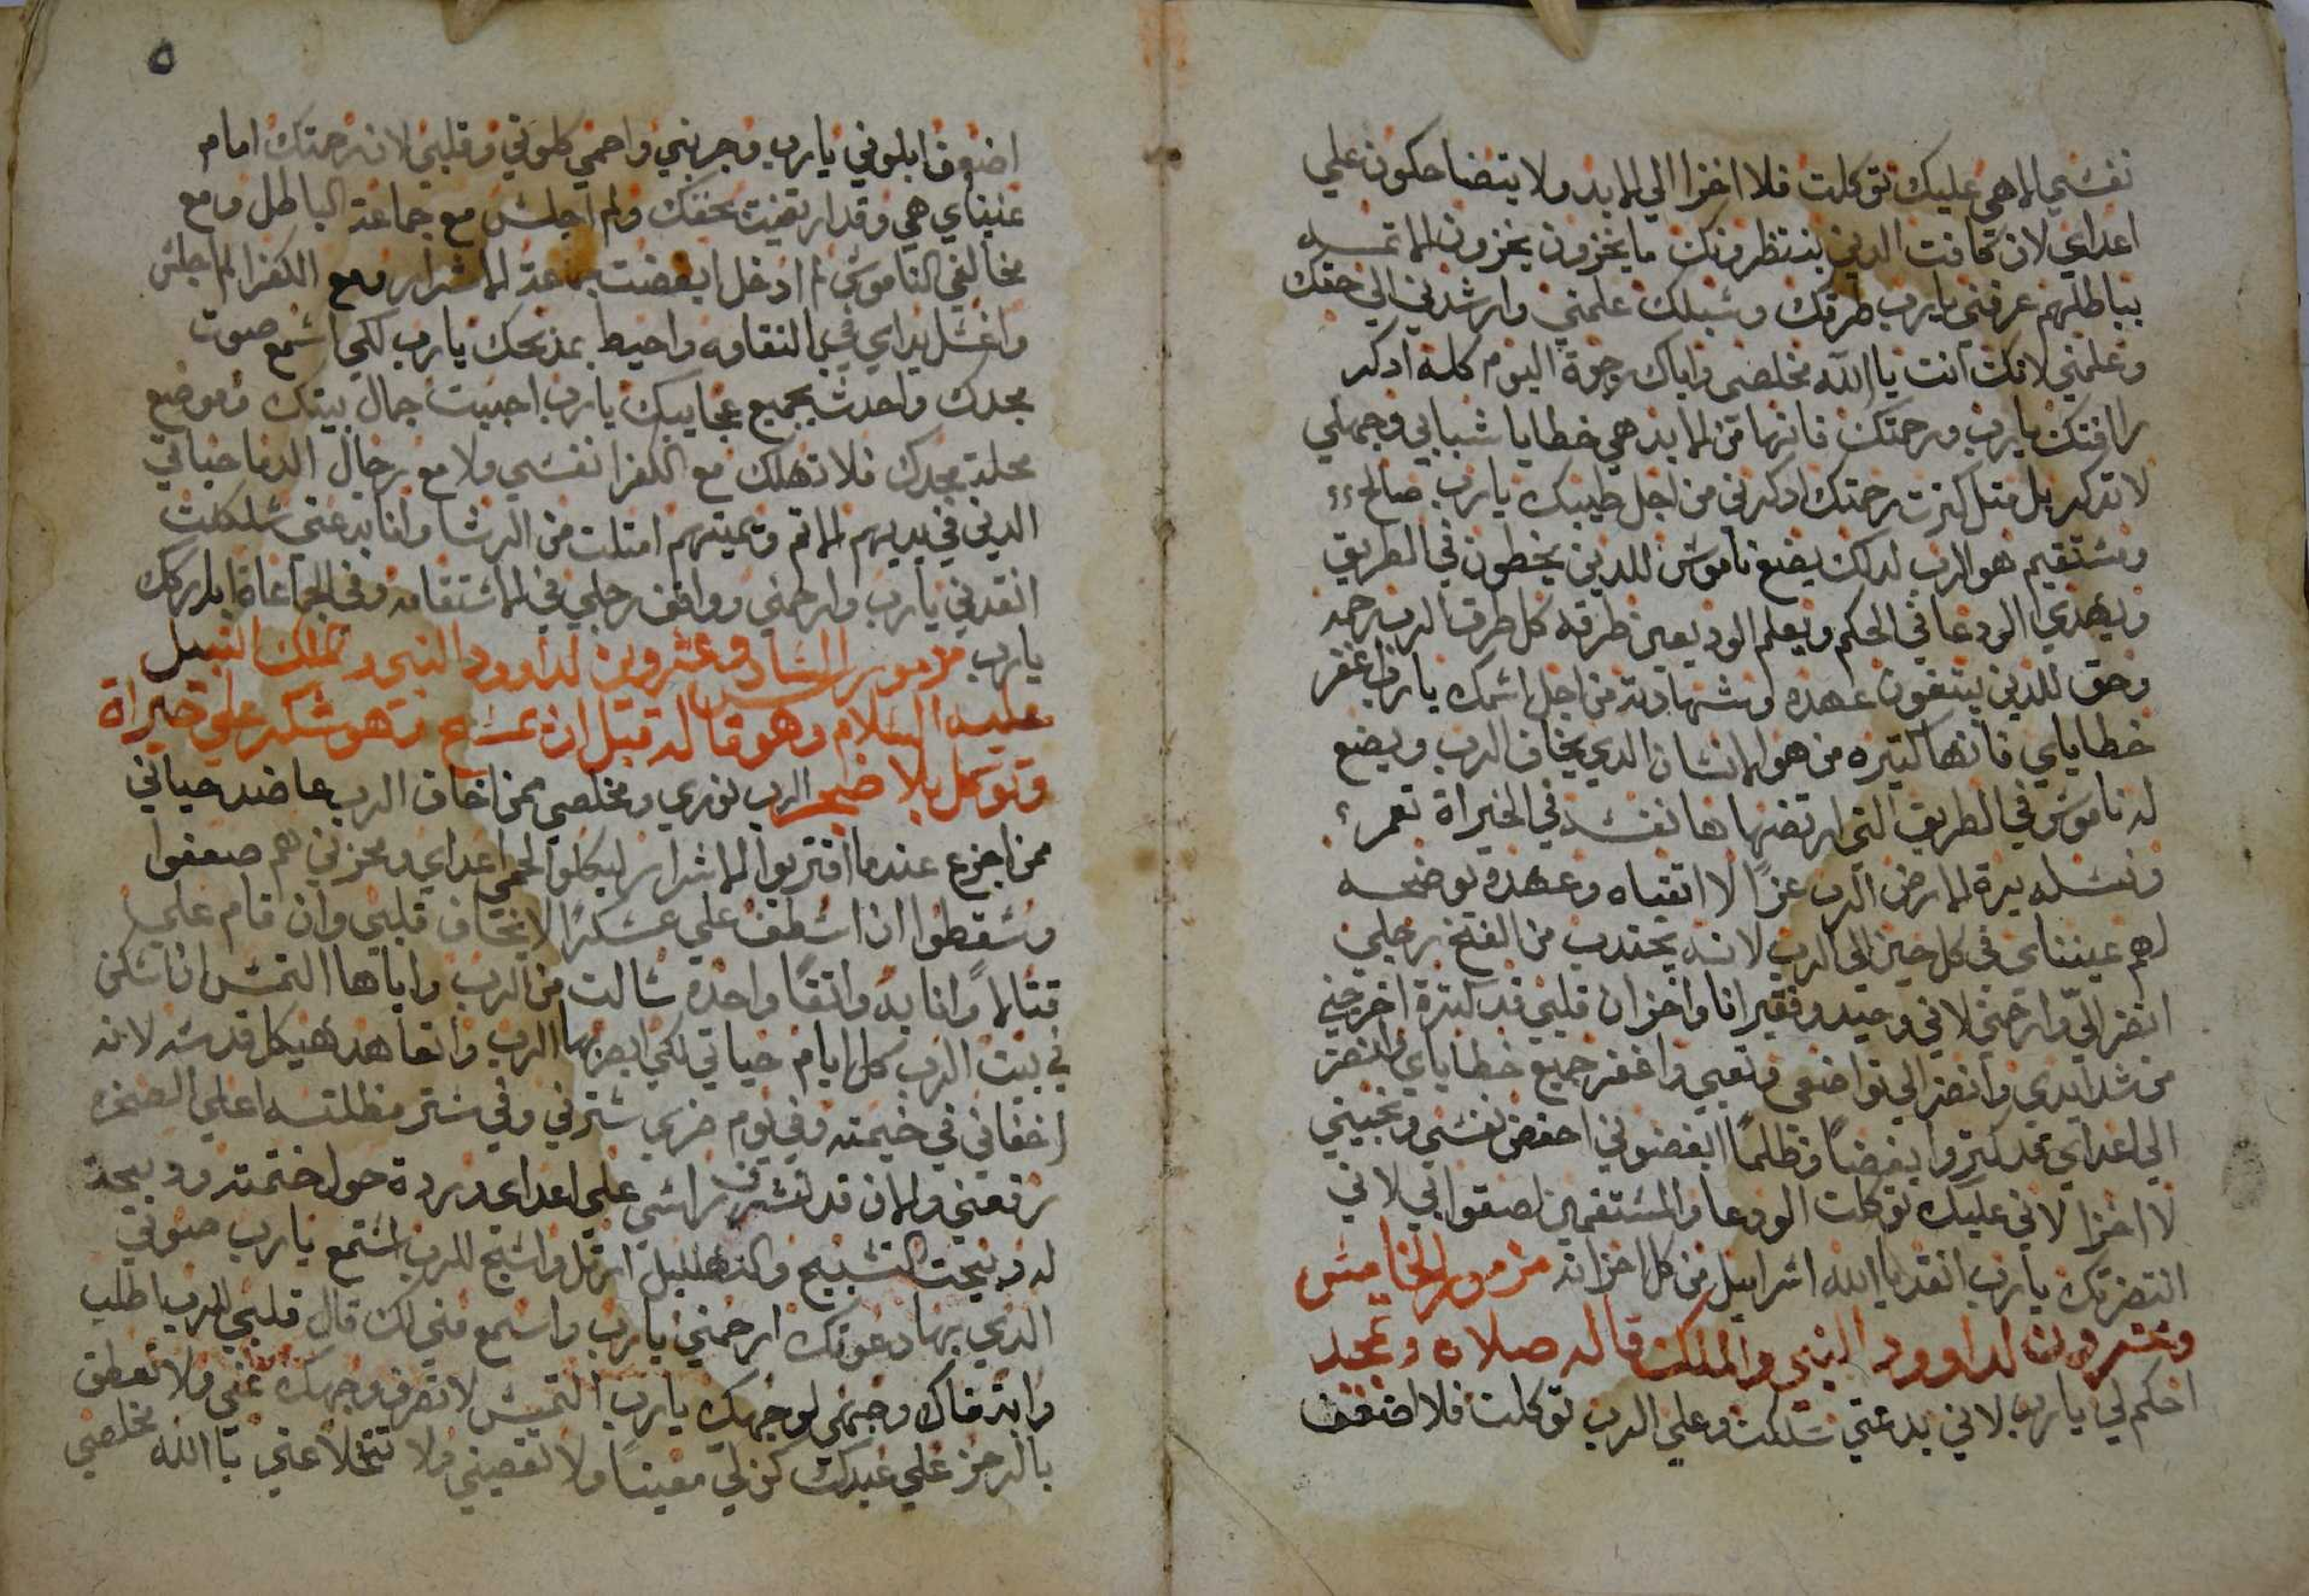 نفسي الاهي عليك توكلت فلا اخزا الي الابد ولا يتضاحكون علي
اعداي لان كافت الدين ينتظرونك ما يخزون يخزون الاتمه
بباطلهم عرفني يارب طرقك وسبلك علمني وارشدني الي حقك
وعلمني لانك انت يا الله مخلصي واياك رجوة اليوم كله ادكر
رافتك يارب ورحمتك فانها من الابد هي خطايا شبابي وجهلي
لا تدكر بل متل كترت رحمتك ادكرني من اجل طيبك يارب صالح
ومستقيم هو الرب لدلك يضع ناموس للدين يخطون في الطريق
ويهدي الودعا في الحكم ويعلم الوديعين طرقه كل طرق الرب رحمه
وحق للدين يبتغون عهده وشهادته من اجل اسمك يارب اغفر
خطاياي فانها كتيره من هو الانسان الدي يخاف الرب ويضع
له ناموس في الطريق التي ارتضها هانفسه في الخيراة تعمر
ونسله يرة الارض الرب عزًا لاتقياه وعهده يوضحه
لهم عينناي في كل حين الي الرب لانه يجتدب من الفخ رجلي
انضر اليّ وارحمني لاني وحيد وفقير انا واحزان قلبي قد كترة اخرجني
من شدايدي وانضر الي تواضعي وتعبي واغفر جميع خطاياي وانضر
الي اعداي قد كتروا وبغضًا وظلمًا ابغضوني احفض نفسي ونجيني
لا اخزا لاني عليك توكلت الودعا والمستقمين لصقوا بي لاني
انتضرتك يارب انقد يا الله اسراييل من كل احزانه مزمور الخامس
وعشرون لداوود النبي والملك قاله صلاه وتمجد
احكم لي يارب لاني بدعتي سلكت وعلي الرب توكلت فلا اضعف
٥
اضعوف ابلوني يارب وجربني واحمي كلوتي وقلبي لان رحمتك امام
عيناي هي وقد ارتضيت بحقك ولم اجلس مع جماعة الباطل ومع
مخالفي الناموس لم ادخل ابغضت جماعة الاشرار ومع الكفرا لم اجلس
واغسل يداي في النقاوه واحيط بمدبحك يارب لكي اسمع صوت
مجدك واحدث بجميع عجايبك يارب احببت جمال بيتك وموضع
محلة مجدك فلا تهلك مع الكفرا نفسي ولا مع رجال الدما حياتي
الدين في يديهم الاتم ويمينهم امتلت من الرشا وانا بدعتي سلكت
انقدني يارب وارحمني وواقف رجلي في الاستقامه وفي الجماعاة اباركك
يارب مزمور السادس وعشروين لداوود النبي وملك النبيل
عليه السلام وهو قاله قبل ان يمسح وهو شكر علي خيراة
وتوكل بلا ضجر الرب نوري ومخلصي ممن اخاف الرب عاضد حياتي
ممن اجزع عندما اقتربوا الاشرار ليكلوا لحمي اعداي ومحزني هم صعفوا
وسقطوا ان اسطف علي عسكرًا لا يخاف قلبي وان قام علي
قتالاً وانا به واتقًا واحده سالت من الرب واياها التمس ان اسكن
في بيت الرب كل ايام حياتي لكي ابصر بها الرب واتعاهد هيكل قدسه لانه
اخفاني في خيمته وفي يوم ضري سترني وفي ستر مظلته اعلي الصخره
رفعني والان قد تشرف راسي علي اعداي ودردة حول خثمته ودبيحة
له دبيحت التسبيح والتهلليل ارتل واسبح للرب استمع يارب صوتي
الدي بها دعوتك ارحمني يارب واسمع مني لك قال قلبي للرب اطلب
وابتدفاك وجهي لوجهك يارب التميس لا تصرف وجهك عني ولا تعطف
بالرجز علي عبدك كن لي معينًا ولا تقصيني ولا تتخلا عني يا الله مخلصي